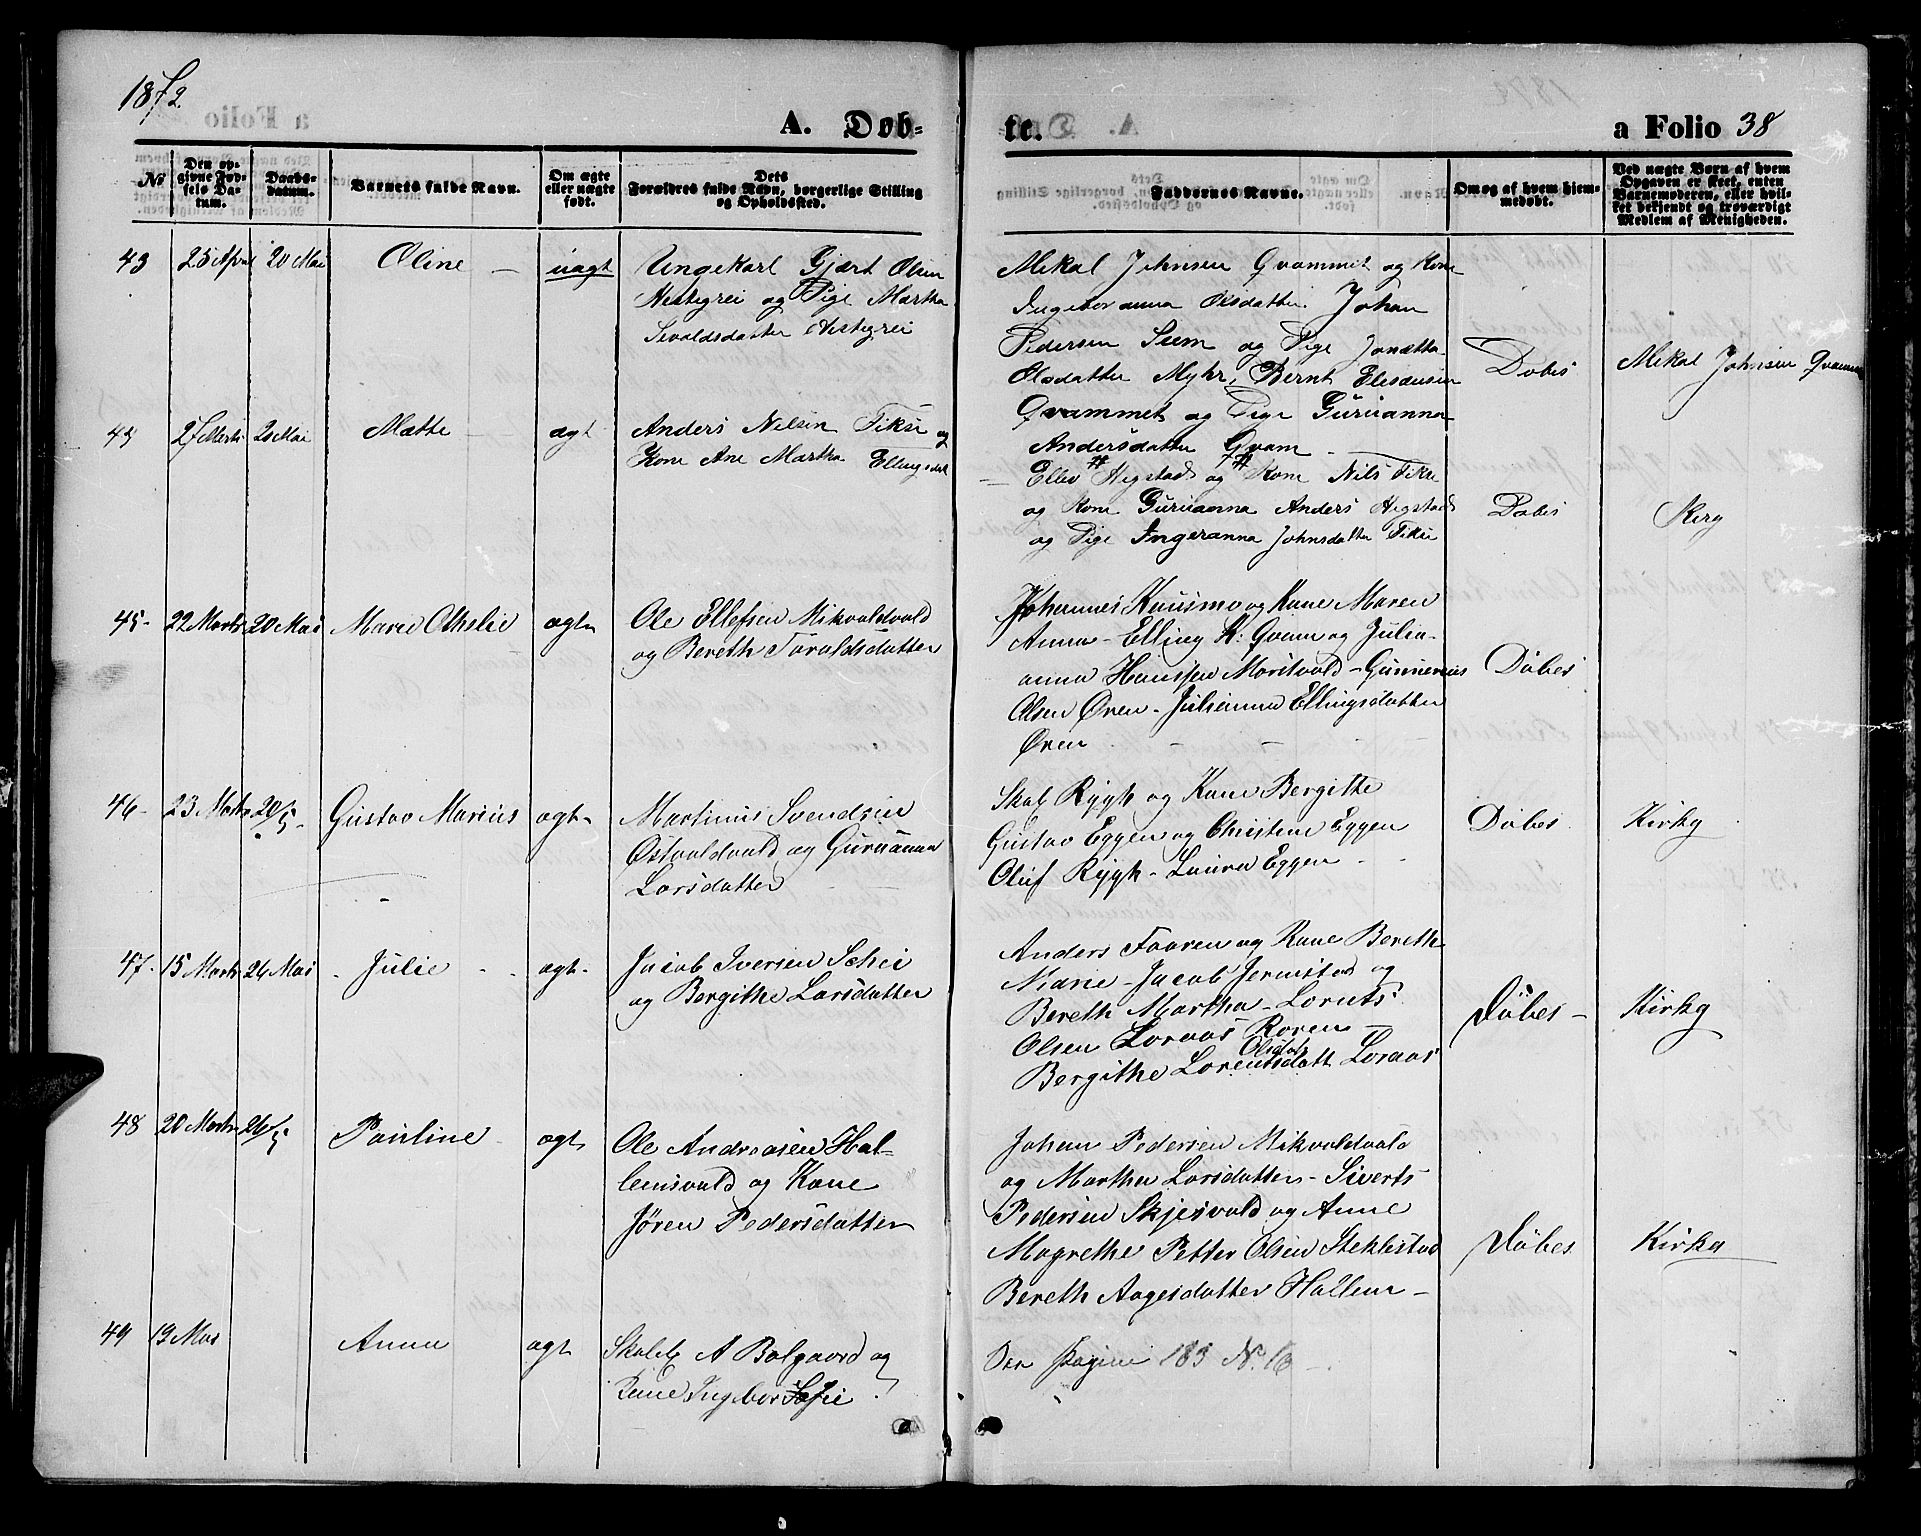 1872
A. Døb-
te.
a Folio 38
No
Den op-
givne Fød-
sels Da-
tum.
Daabs-
datum.
Barnets fulde Navn.
Om ægte
eller uægte
født.
Dets
Forældres fulde Navn, borgerlige Stilling
og Opholdssted.
Faddernes Navne.
Om og af hvem hjem-
medøbt.
Ved uægte Børn af hvem
Opgaven er skeet, enten
Barnemoderen, eller hvil-
ket bekjendt og troværdigt
Medlem af Menigheden.
43 25 April 20 Mai Oline - uagt
Ungekarl Gjært Olsen
Hestegrei og Pige Martha
Sevaldsdatter Hestegrei
Mikal Johnsen Qvammet og Kone
Ingeboranna Olsdatter. Johan
Pedersen Suem og Pige Jonætta
Olsdatter Myhr, Bernt Eleseusen
Qvammet og Pige Guruanna
Andersdatter Qvam -
Døbes
Mikal Johnsen Qvamme
27 Marts 20 Mai Mætte - agt
Anders Nilsen Tiksi og
Kone Ane Martha Ellingsdat
Ellev Hegstad og Kone Nils Tikse
og Kone Guruanna Anders Hegstad
og Pige Ingeranna Johnsdatter Tiksi
Døbes
45- 22 Marts 20 Mai Marie Othelie agte
Ole Ellefsen Mikvoldvald
og Bereth Toroldsdatter
Johannes Kausmo og Kone Maren
Anna - Elling K: Qvam og Julia-
anna Hanssen Moritvald - Gunnerius
Olsen Øren - Julianna Ellingsdatter
Øren - - -
Døbes
46- 23 Marts 20/5- Gustav Marius agt-
Martinus Svendsen
Østvoldvald og Guruanna
Larsdatter
Skal Rygh og Kone Bergithe
Gustav Eggen og Christine Eggen
Oluf Rygh - Laura Eggen -
Døbes
Kirkg
47- 15 Marts 26 Mai - Julie - - agt-
Jacob Iversen Schei
og Bergithe Larsdatter
Anders Faaren og Kone Bereth
Marie - Jacob Jermstad og
Bereth Martha - Lornts
Olsen Loraas Roren -
Olsdatr
Bergithe Lorentsdatt Loraas
Døbes -
Kirkg
48 20 Marts 26/5 Pauline - agt
Ole Andreasen Hal-
lemsvald og Kone
Jøren Pedersdatter
Johan Pedersen Mikvoldvald
og Martha Larsdatter - Siverts
Pedersen Skjesvold og Anne
Magrethe Petter Olsen Steklestad
Bereth Aagesdatter Hallem -
Døbes
Kirkg
49 19 Mai Anna agt
Skolel A Balgaard og
Kone Ingebor Sofie
See Pagina 183 No. 16 -